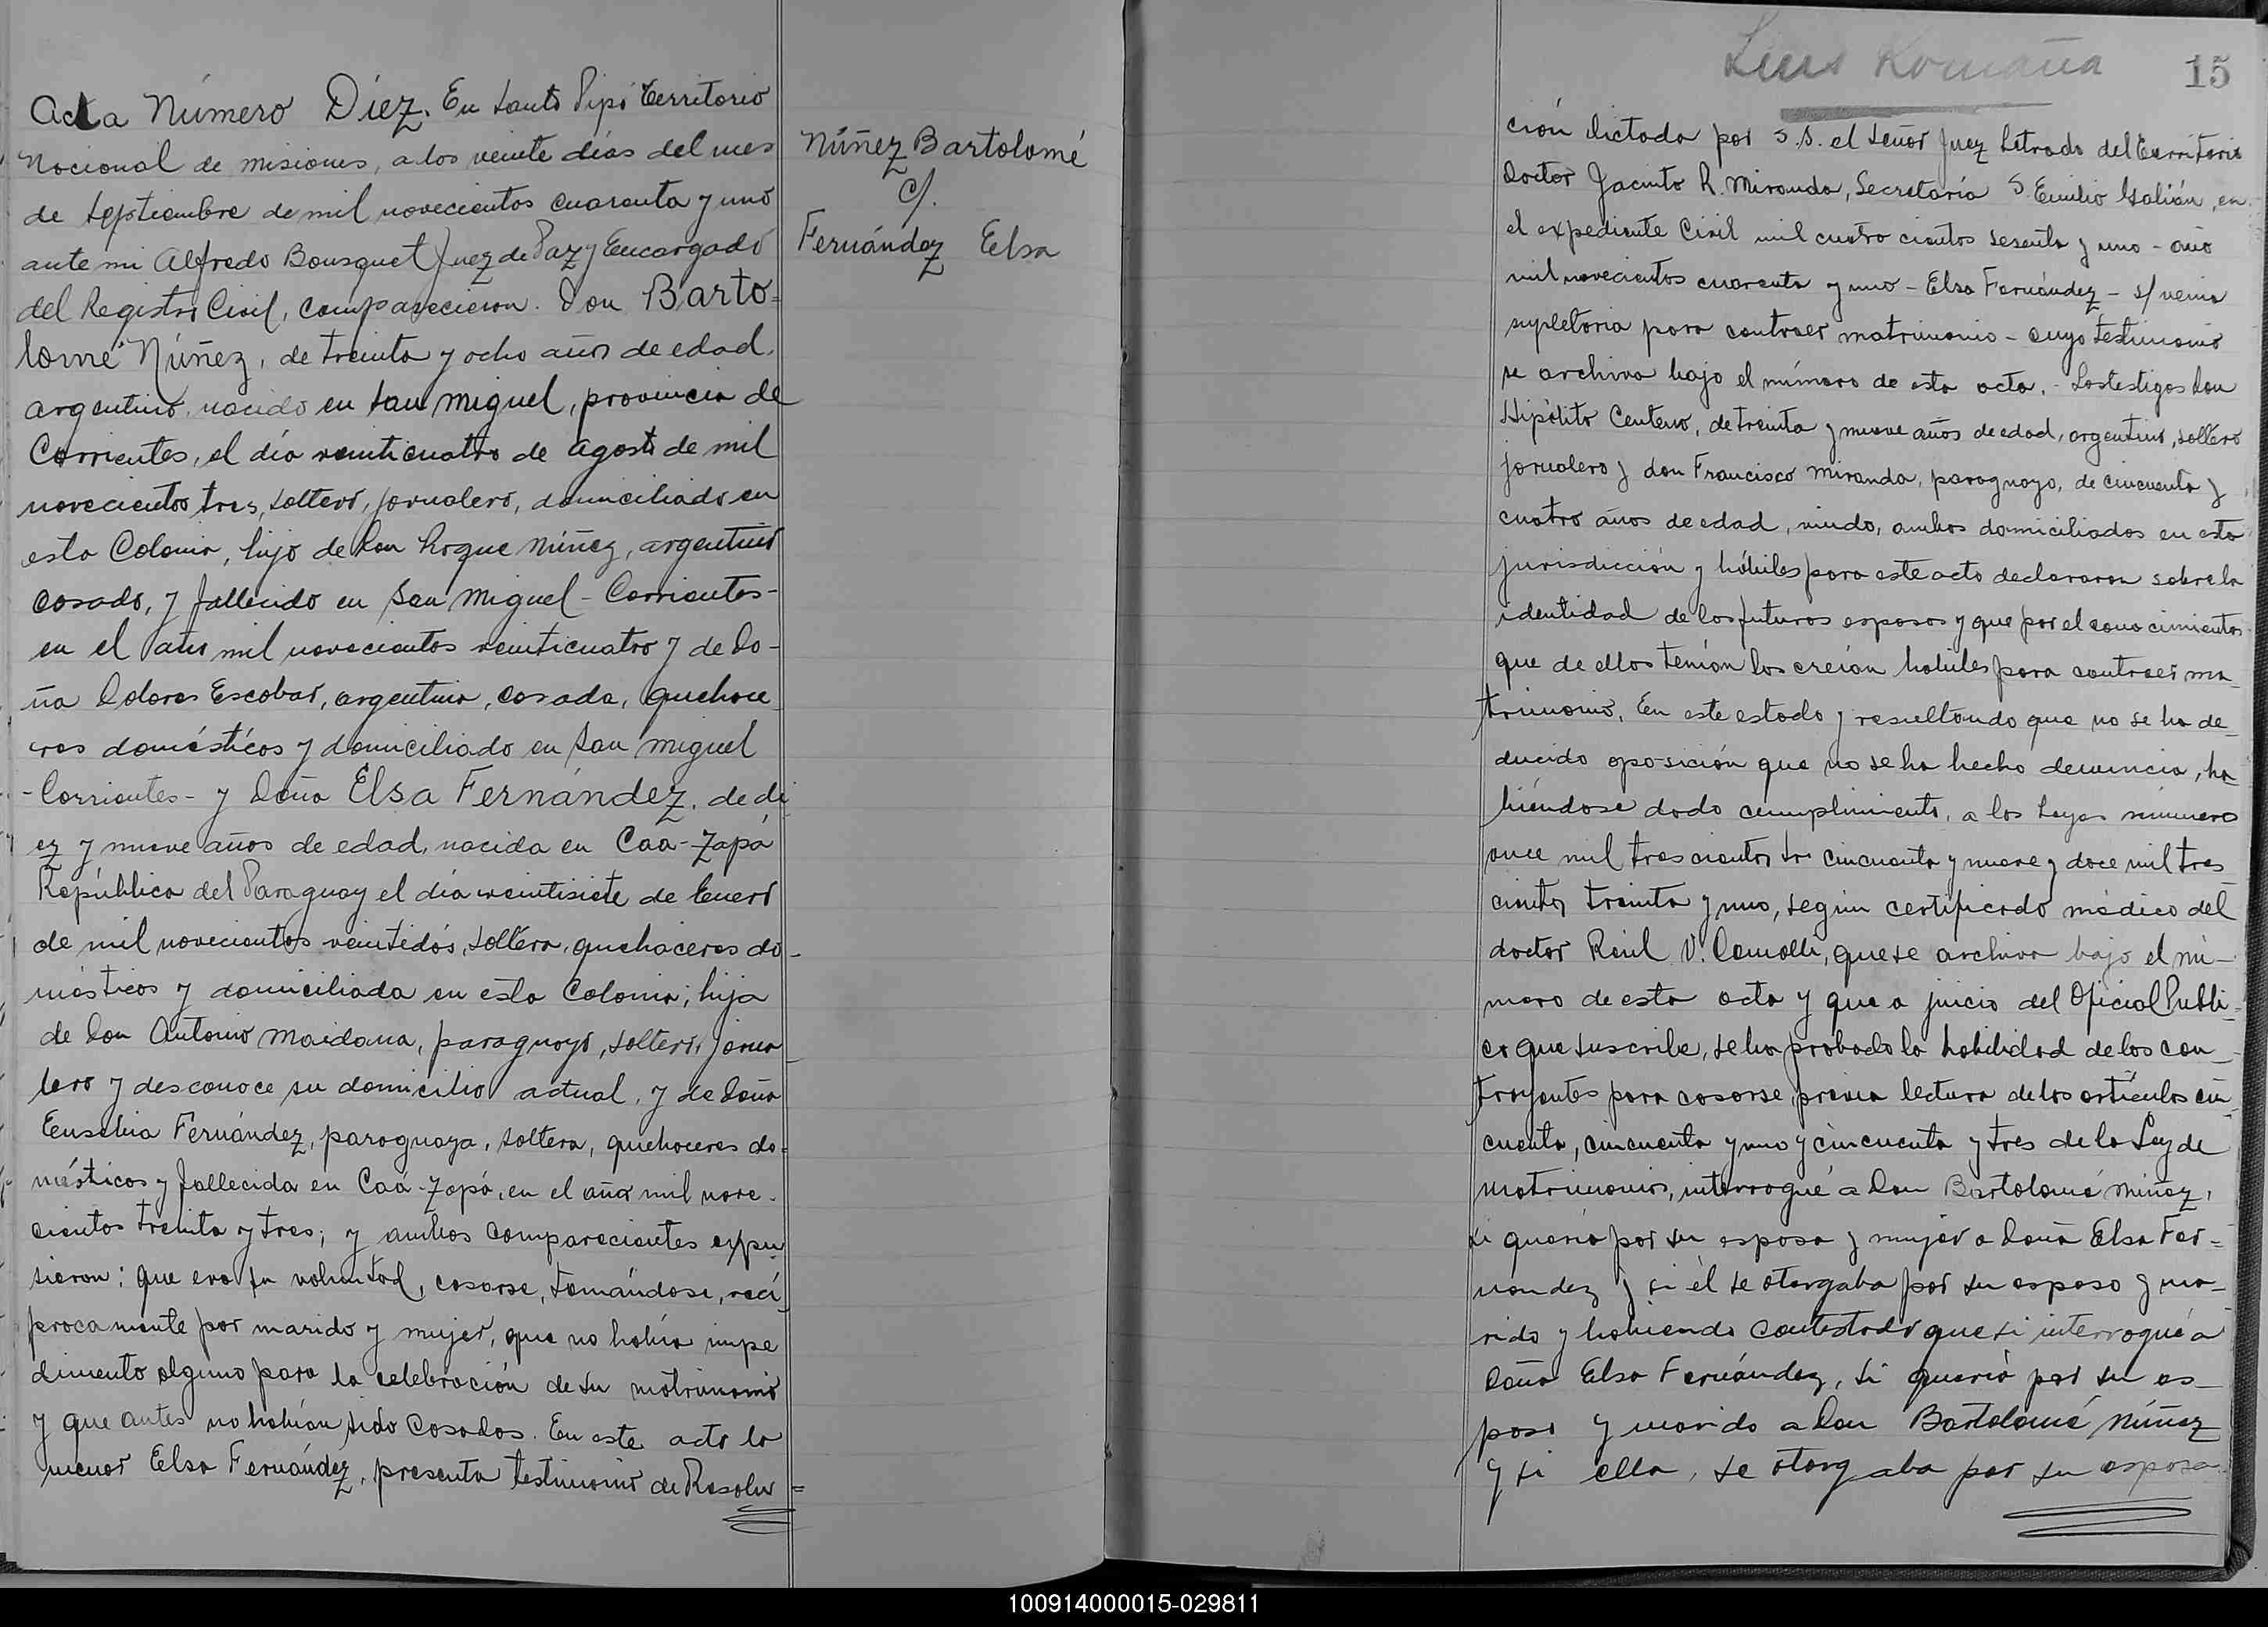 Acta Número Diez. En Santo Pipó Territorio
Nacional de Misiones, a los veinte días del mes
de Septiembre de mil novecientos cuarenta y uno
ante mi Alfredo Bousquet Juez de Paz y Encargado
del Registro Civil, comparecieron. Don Barto=
lomé Núñez, de treinta y ocho años de edad,
argentino, nacido en San Miguel, provincia de
Corrientes, el día veinticuatro de Agosto de mil
novecientos tres, soltero, jornalero, domiciliado en
esta Colonia, hijo de Don Roque Núñez, argentino
casado, y fallecido en San Miguel - Corrientes -
en el año mil novecientos veinticuatro y de Do-
ña Dolores Escobar, argentina, casada, quehace
res domésticos y domiciliado en San Miguel
- Corrientes - y Doña Elsa Fernández, de di
ez y nueve años de edad, nacida en Caa-Zapá
República del Paraguay el día veintisiete de Enero
de mil novecientos veintidós, soltera, quehaceres do-
mésticos y domiciliada en esta Colonia; hija
de Don Antonio Maidana, paraguayo, soltero, jorna-
lero y desconoce su domicilio actual, y de Doña
Eusebia Fernández, paraguaya, soltera, quehaceres do=
mésticos y fallecida en Caá-Zapá, en el año mil nove-
cientos treinta y tres; y ambos comparecientes expu
sieron: que era su voluntad, casarse, tomándose, recí
procamente por marido y mujer, que no había impe
dimento alguno para la celebración de su matrimonio
y que antes no habían sido casados. En este acto la
menor Elsa Fernández, presenta testimonio de Resolu=
Núñez Bartolomé
c/.
Fernández Elsa
Luis Romaña
15
ción dictada por S.S. el Señor Juez Letrado del Territorio
Doctor Jacinto R. Miranda, Secretaría S. Emilio Galián, en
el expediente Civil mil cuatro cientos sesenta y uno - año
mil novecientos cuarenta y uno - Elsa Fernández - s/ venia
supletoria para contraer matrimonio - cuyo testimonio
se archiva bajo el número de esta acta. - Los testigos Don
Hipólito Centeno, de treinta y nueve años de edad, argentino, soltero
jornalero y don Francisco Miranda, paraguayo, de cincuenta y
cuatro años de edad, viudo, ambos domiciliados en esta
jurisdicción y hábiles para este acto declararon sobre la
identidad de los futuros esposos y que por el conocimientos
que de ellos tenían los creían habiles para contraer ma-
trimonio. En este estado y resultando que no se ha de-
ducido oposición que no se ha hecho denuncia, ha
biéndose dado cumplimiento, a los Leyes número
once mil tres cientos cincuenta y nueve y doce mil tres
cientos treinta y uno, según certificado médico del
doctor Raúl V. que se archiva bajo el nú-
mero de esta acta y que a juicio del Oficial Públi-
co que suscribe, se ha probado la habilidad de los con-
trayentes para casarse, previa lectura de los artículos cin
cuenta, cincuenta y uno y cincuenta y tres de la Ley de
Matrimonio, interrogué a Don Bartolomé Núñez,
si quería por su esposa y mujer a Doña Elsa Fer=
nandez y si él se otorgaba por su esposo y ma-
rido y habiendo contestado que si interrogué a
Doña Elsa Fernández, si quería por su es-
poso y marido a Don Bartolomé Núñez
y si ella, se otorgaba por su esposa
100914000015-029811